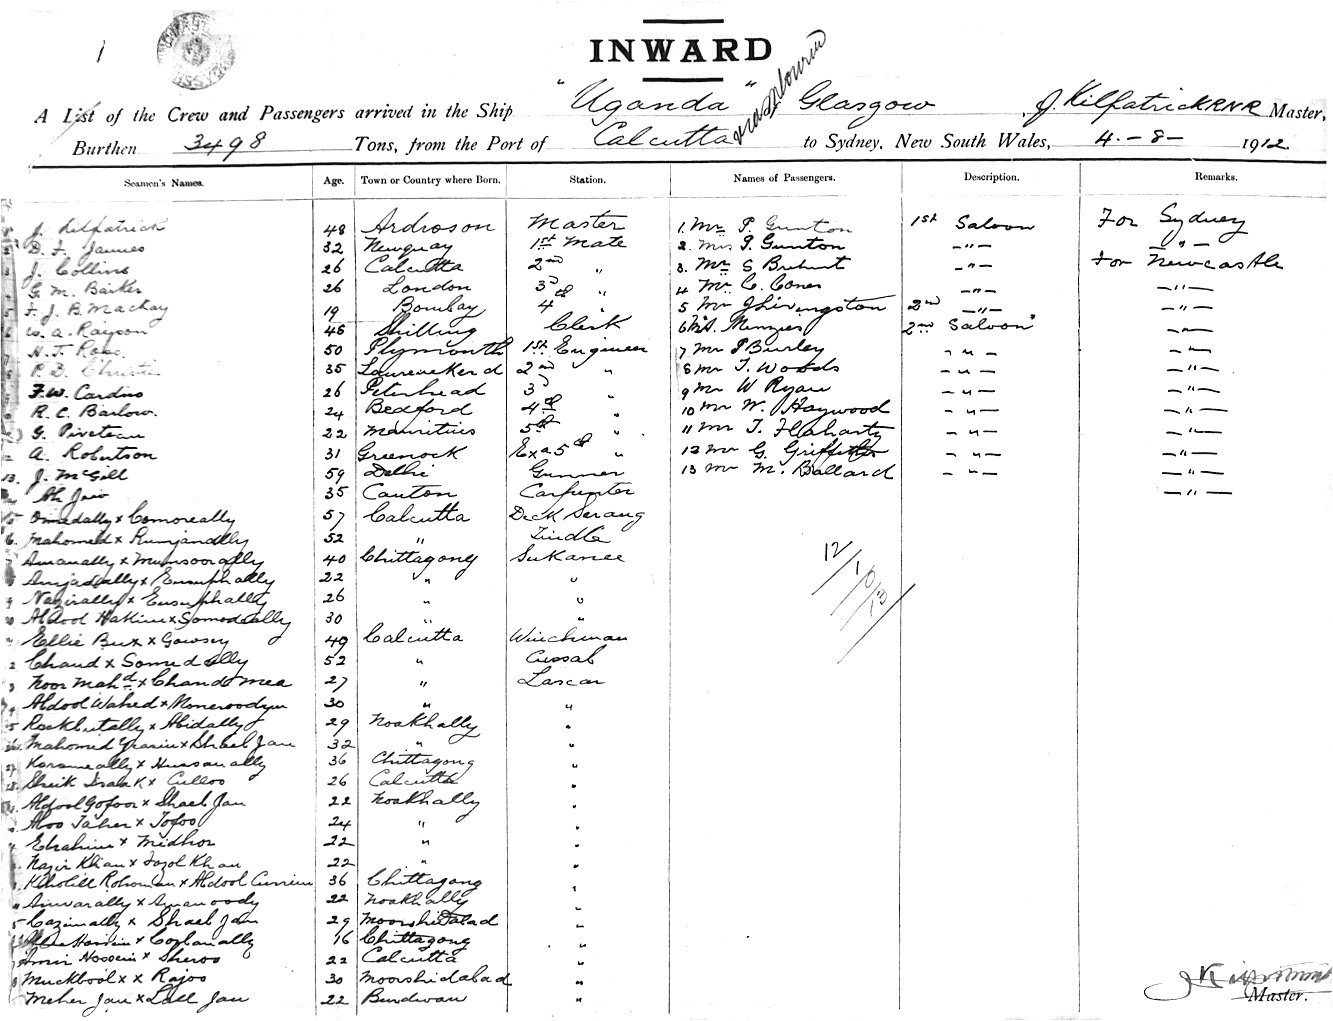 1
INWARD
A List of the Crew and Passengers arrived in the Ship "Uganda" Glasgow, J. Kilpatrick RNR Master,
Burthen 3498 Tons, from the Port of Calcutta via Melbourne to Sydney, New South Wales, 4-8-1912
Seamen's Names. Age. Town or Country where Born. Station. Names of Passengers. Description. Remarks.
J. Kilpatrick 48 Ardroson Master 1. Mr P. Gunton 1st Saloon For Sydney
D. F. Jammes 32 Newquay 1st Mate 2. Mrs P. Gunton -"- -"-
J. Collins 26 Calcutta 2nd " 3. Mr S -"- For Newcastle
G. M. Barker 26 London 3rd " 4 Mr C. Cones -"- -"-
F. J. B. Mackay 19 Bombay 4th " 5 Mr J Livingston 2nd -"- -"-
W. A. Rayson 48 Shilling Clerk 6 Menzies 2nd Saloon -"-
H. T. Ross 50 Plymouth 1st Engineer 7 Mr P Burley -"- -"-
P. D. Christie 35 2nd " 8 Mr T. Woods -"- -"-
F. W. Cardno 26 Peterhead 3rd " 9 Mr W Ryan -"- -"-
R. C. Barlow. 24 Bedford 4th " 10 Mr W. Haywood -"- -"-
G. Piveteau 22 Mauritius 5th " 11 Mr T. Flaharty -"- -"-
A. Robertson 31 Greenock Exa 5th " 12 Mr G. Griffiths -"- -"-
13. J. McGill 59 Delhi Gunner 13 Mr M. Ballard -"- -"-
Ah 35 Canton Carpenter -"-
Omedally x Comoreally 57 Calcutta Deck Serang
Mahomed x Rumjandlly 52 " Tindle
Amanally x Munsoorally 40 Chittagong Sukanee
Amjadally x Eusuphally 22 " "
Nazirally x Eusuphally 26 " "
Abdool Hakim x Somodeally 30 " "
Ellie Bux x Gowsey 49 Calcutta Winchman
Chand x Somedally 52 " Cussab
Noor Mahd x Chand Mea 27 " Lascar
Abdool Wahed x Moneroodyn 30 " "
Rockbutally x Abidally 29 Noakhally "
Mahomed Yrasin x Shael Jan 32 " "
Koromeally x Hussonally 36 Chittagong "
Sheik Isaak x Culloo 26 Calcutta "
Abdool Gofoor x Shael Jan 22 Noakhally "
Aboo Taher x Tofoo 24 " "
Ebrahim x Midhor 22 " "
Nazir Khan x Fozol Khan 22 " "
Kholill Rohoman x Abdool Currim 36 Chittagong "
Anwarally x Amanoody 22 Noakhally "
Cazimally x Shael Jan 29 Moorshidabad "
Hossein x Corbanally 16 Chittagong "
Amir Hossein x Sheroo 22 Calcutta "
Muckbool x x Rajoo 30 Moorshidabad "
Meher Jan x Lall Jan 22 Burdwan "
12/10/13
J Kilpatrick
Master.